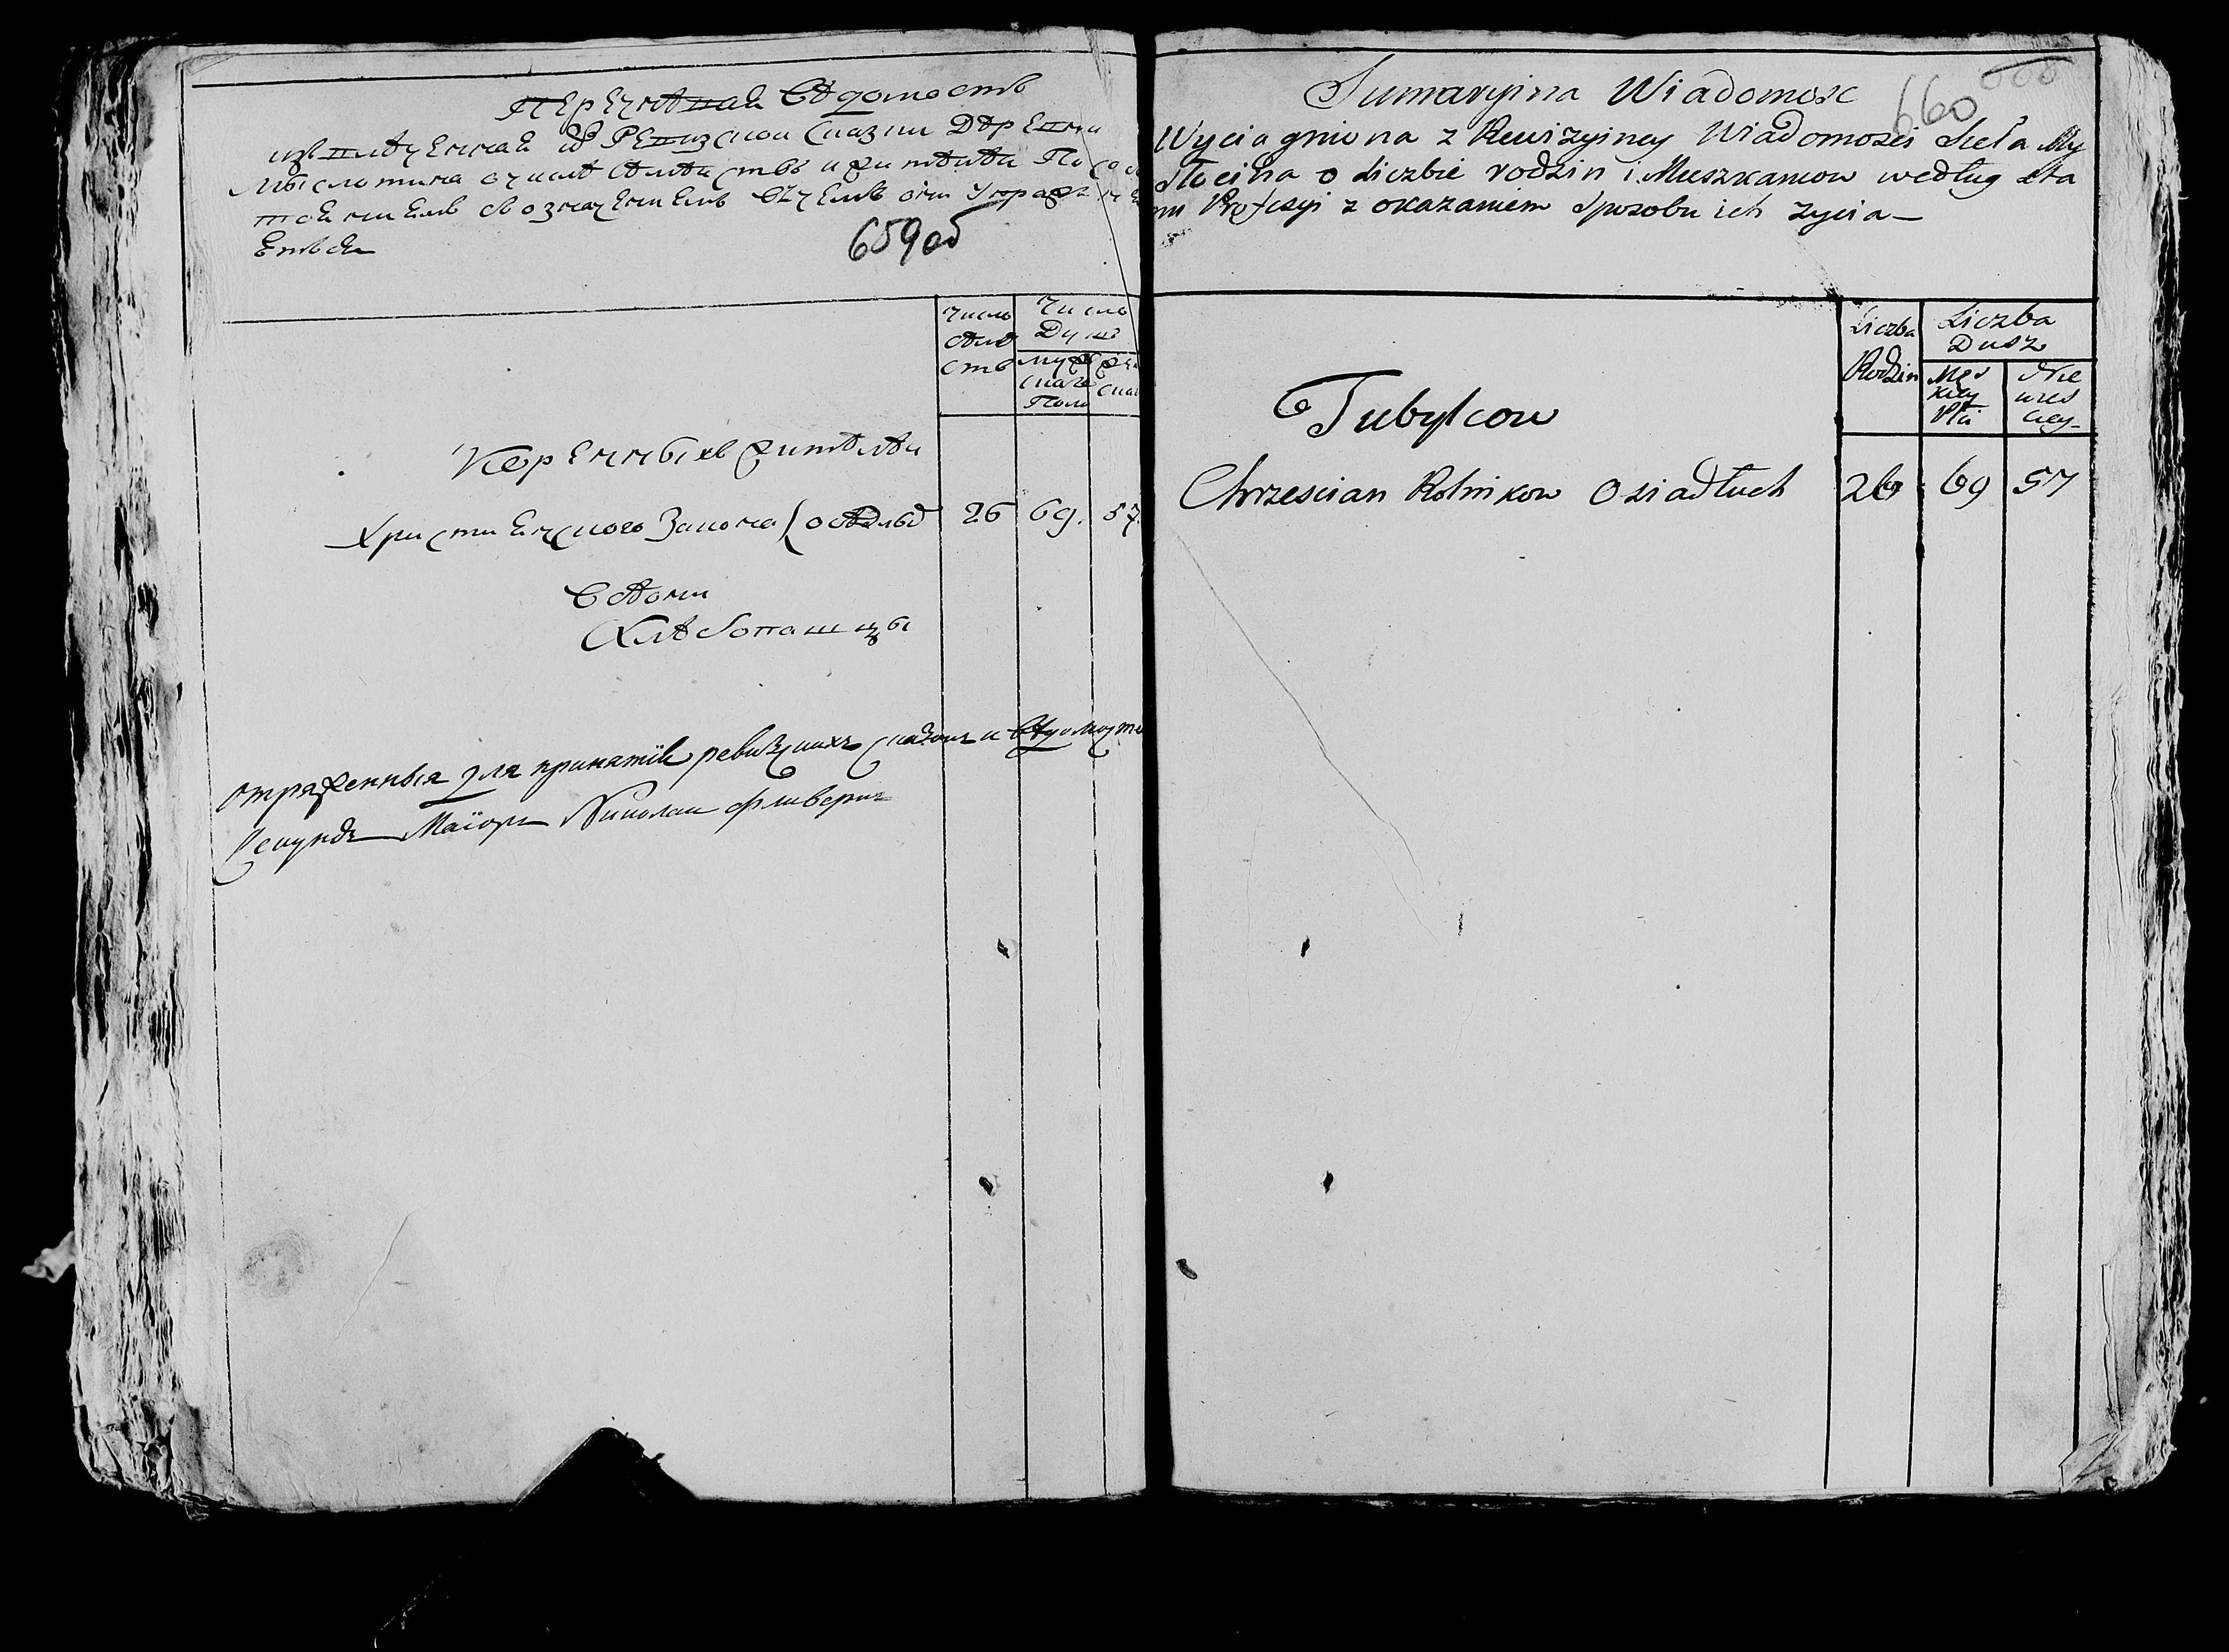 Перечневая Вѣдомость
извлеченная из Ревизской Сказки Деревни
Мыслотина о числѣ Семействъ и жителей По Со
стоянием с означением в Чемъ они Упражне
ются
659об
Число
Семей
ствъ
Число
Душъ
Муже
скаго
Пола
Жен
скаг
Коренныхъ жителей
Христиенского Закона
26 69. 57.
Ониже
Хлебопашцы
отряженныя для принятiя ревизскихъ сказокъ и вѣдомосте
Секундъ Маiоръ Николаи
Sumaryina Wiadomosc
660
Wyciagniona z Rewizyiney Wiadomosci Sieła My
słocina o Liczbie rodzin i Mieszkancow według sta
nu Profesyi z okazaniem Sposobu ich zycia
Liczba
Rodzin
Liczba
Dusz
Męs
kiey
Płci
Nie
wies
ciey
Tubylcow
Chrzescian Rolnikow Osiadłych 26 69 57